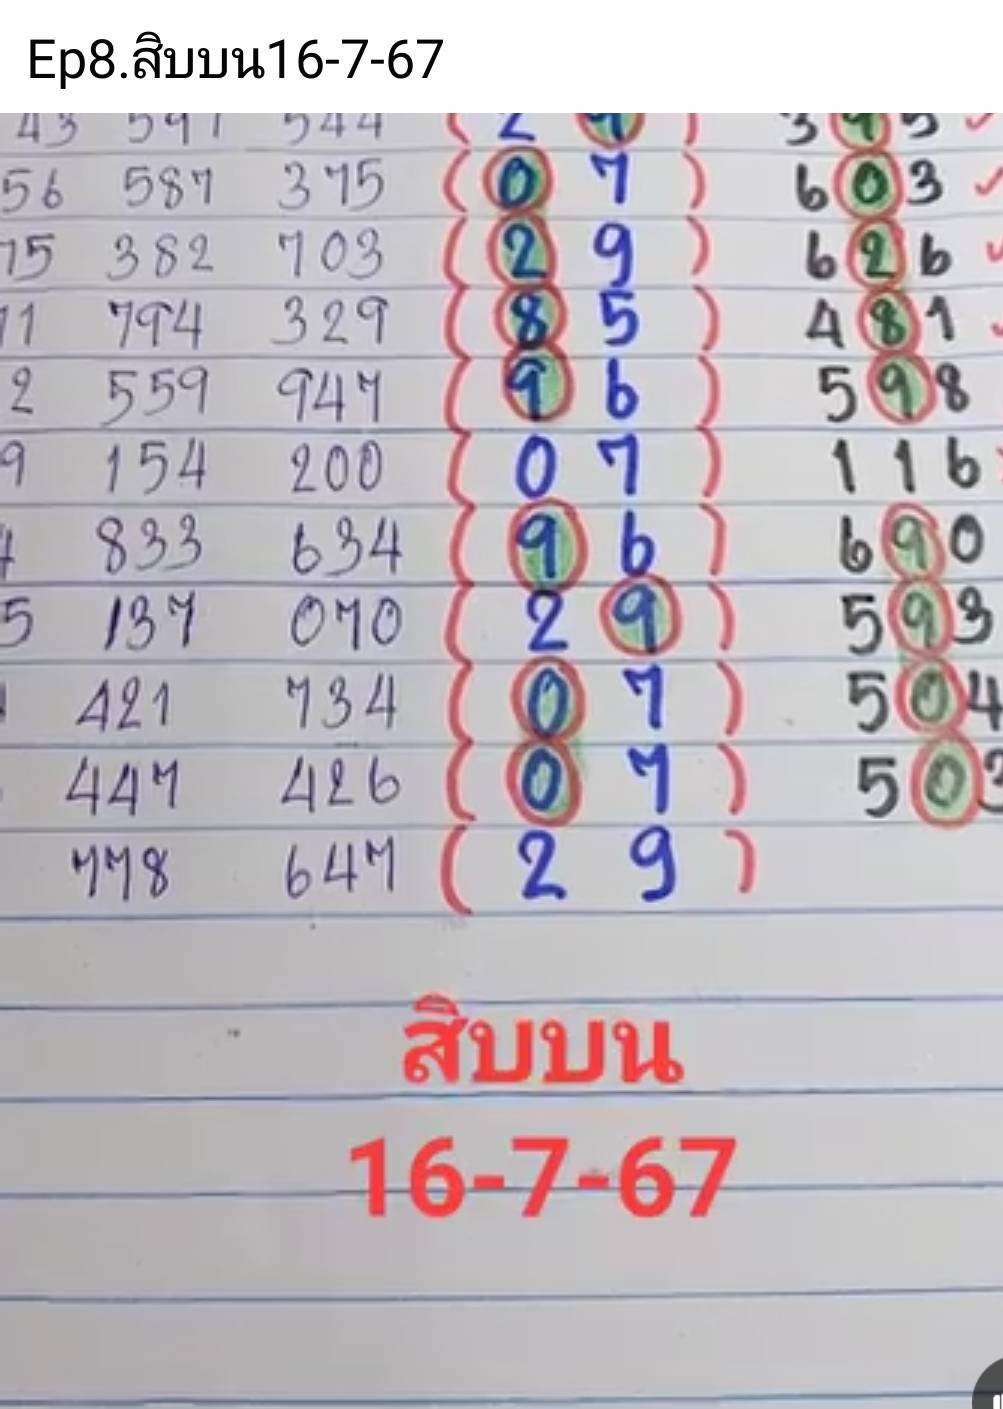 Ep8.สิบบน16-7-67
43 591 544 ( 2 9 ) 395 ✓
56 587 375 ( 0 7 ) 603 ✓
75 382 703 ( 2 9 ) 626 ✓
11 794 329 ( 8 5 ) 481
2 559 947 ( 9 6 ) 598
9 154 200 ( 0 7 ) 116
4 833 634 ( 9 6 ) 690
5 137 070 ( 2 9 ) 593
421 734 ( 0 7 ) 504
447 426 ( 0 7 ) 503
778 647 ( 2 9 )
สิบบน
16-7-67